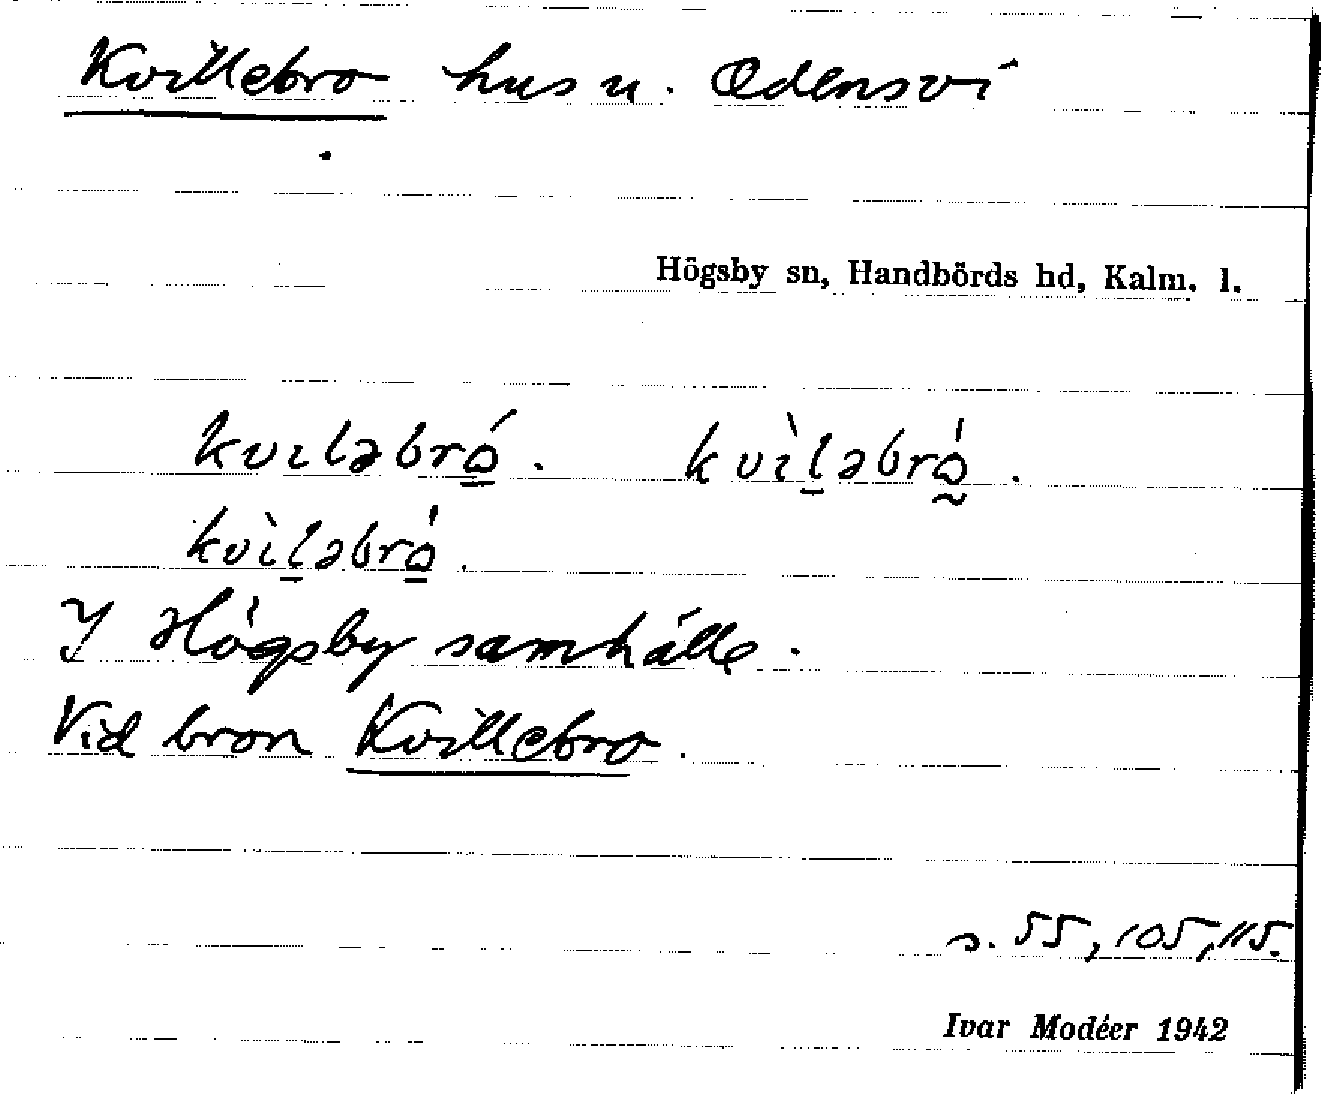 Kvillebro hus u. Odensvi
Högsby sn, Handbörds hd, Kalm. l.
kvıləbró̠. kvìl̠əbrò̰.
kvìl̠əbrò̠.
I Högsby samhälle.
Vid bron Kvillebro.
s. 55, 105, 115.
Ivar Modéer 1942